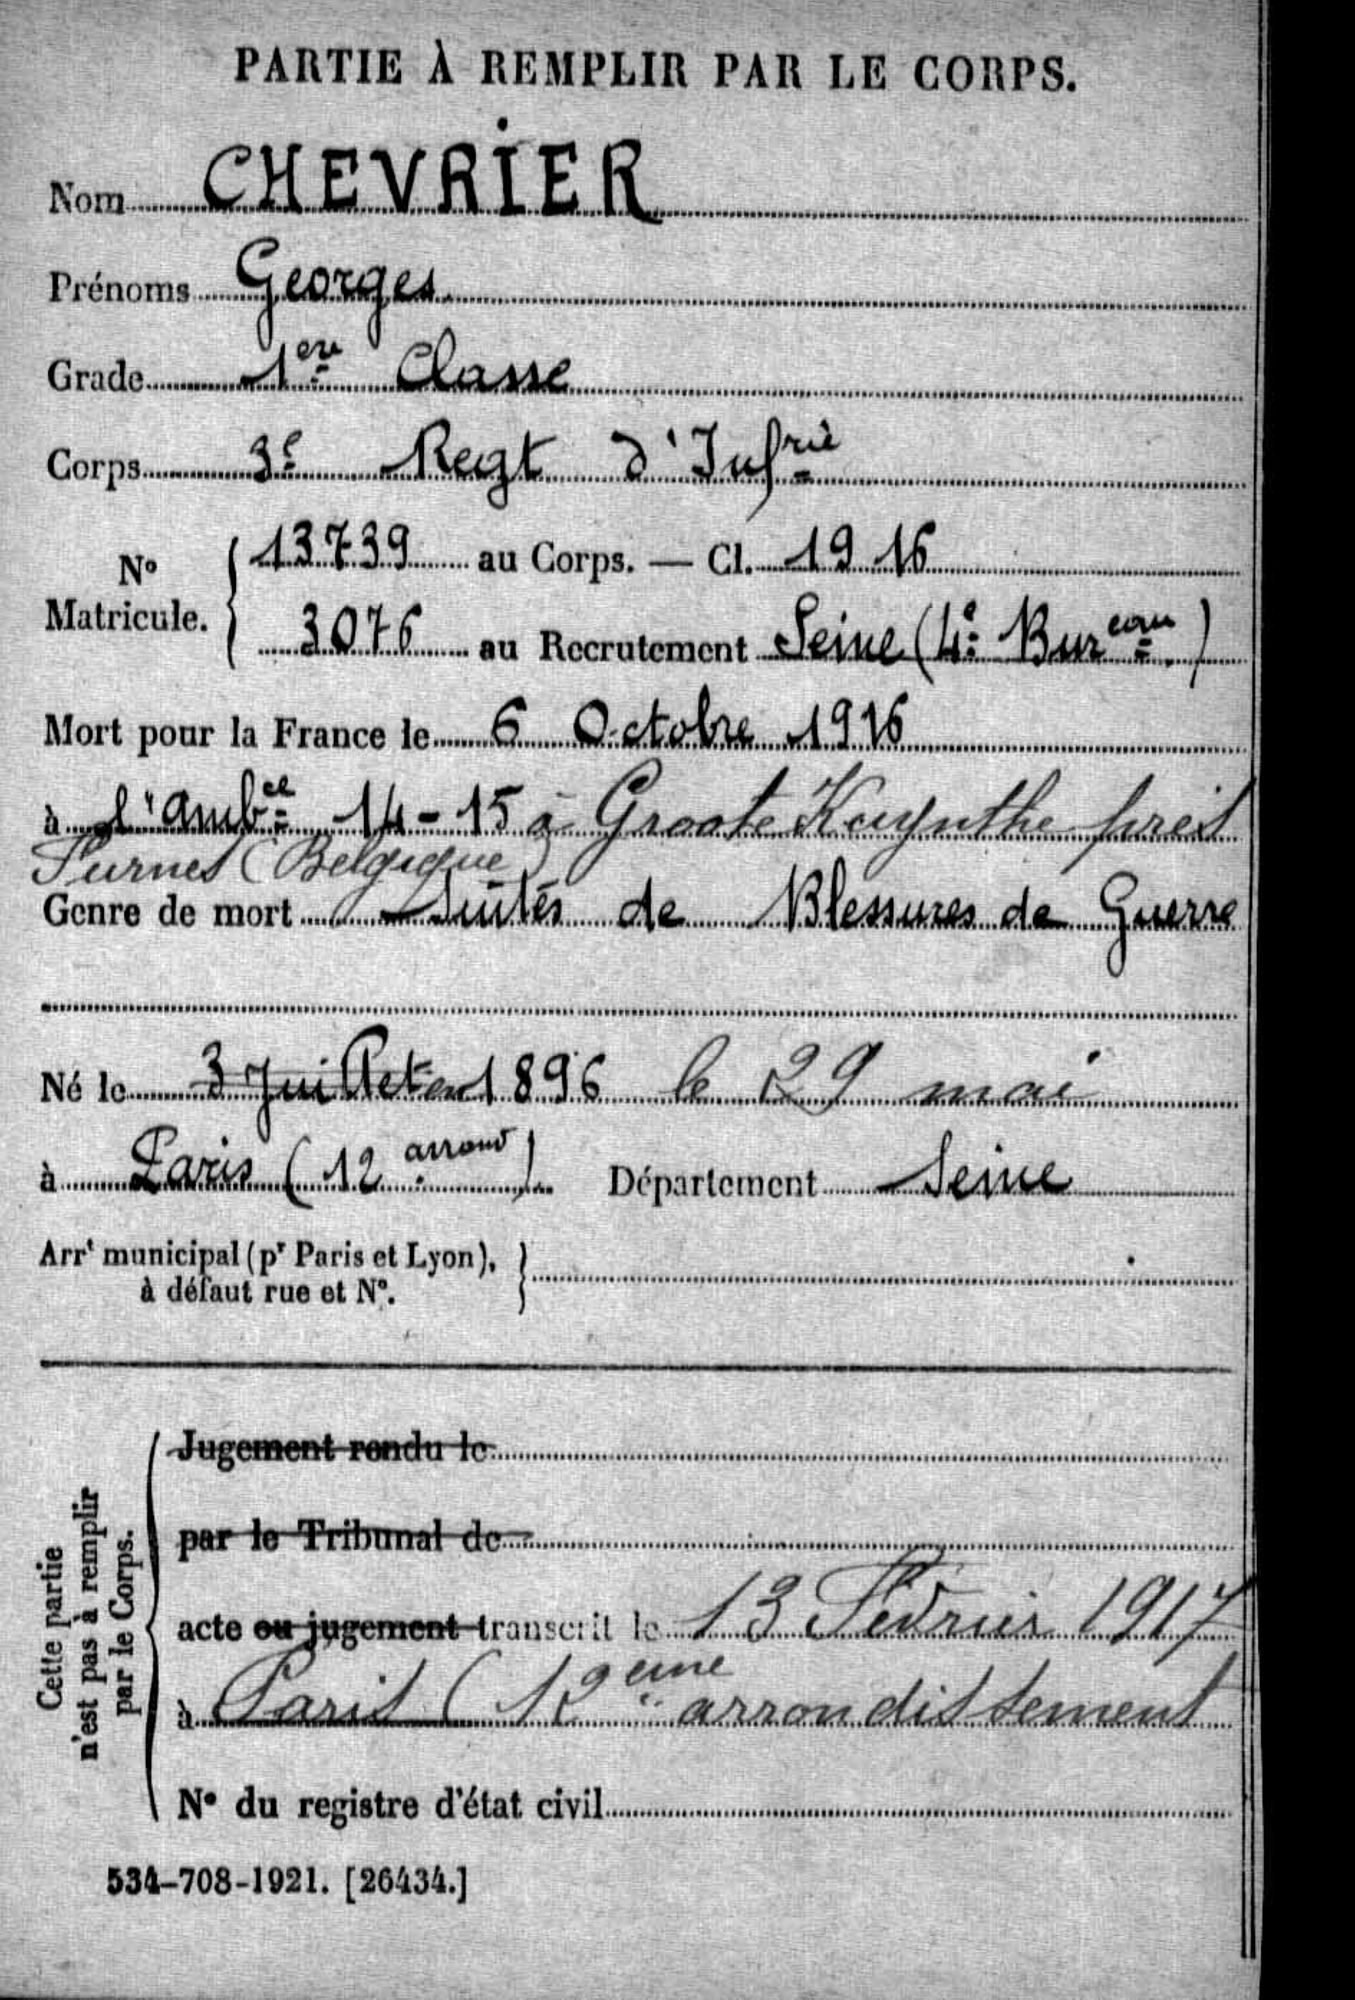 PARTIE À REMPLIR PAR LE CORPS.
Nom CHEVRIER
Prénoms Georges
Grade 1ere Classe
Corps 3e Regt d'Infrie
No Matricule. 13739 au Corps. — Cl. 1916
3076 au Recrutement Seine (4e Bureau)
Mort pour la France le 6 Octobre 1916
à l'Ambce 14-15 à Groote Kuynthe près
Furnes (Belgique)
Genre de mort Suites de Blessures de Guerre
Né le 3 Juillet en 1896 le 29 mai
à Paris (12 arrond) Département Seine
Arrt municipal (pr Paris et Lyon),
à défaut rue et No.
Cette partie
n'est pas à remplir
par le Corps.
Jugement rendu le
par le Tribunal de
acte ou jugement transcrit le 13 Février 1917
à Paris (12eme arrondissement
No du registre d'état civil
534-708-1921. [26434.]